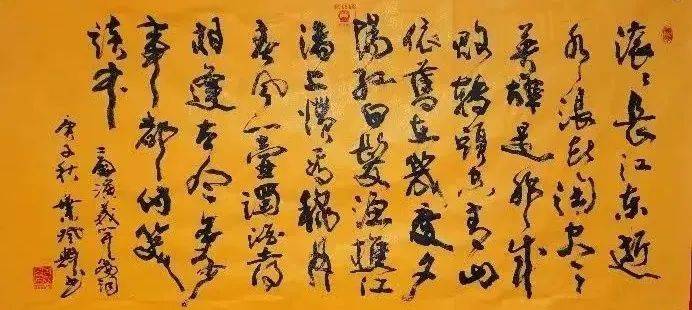 滚滚長江东逝
水浪花淘尽
英雄是非成
败转頭空青山
依舊在几度夕
陽红白髮渔樵江
渚上惯看秋月
春风一壶濁酒喜
相逢古今多少
事都付笑
談中
三国演义开篇词
庚子秋 葉 书